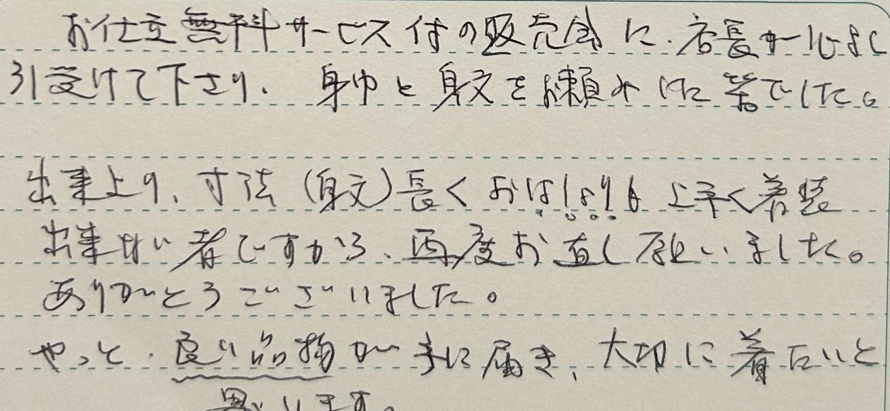 お仕立無料サービス付の販売会に、店長が心よく
引受けて下さり、身巾と身丈をお願いした筈でした。
出来上り、寸法(身丈)長くおはしょりも上手く着装
出来ない者ですから、再度お直し願いました。
ありがとうございました。
やっと、良い品物が手に届き、大切に着たいと
思います。